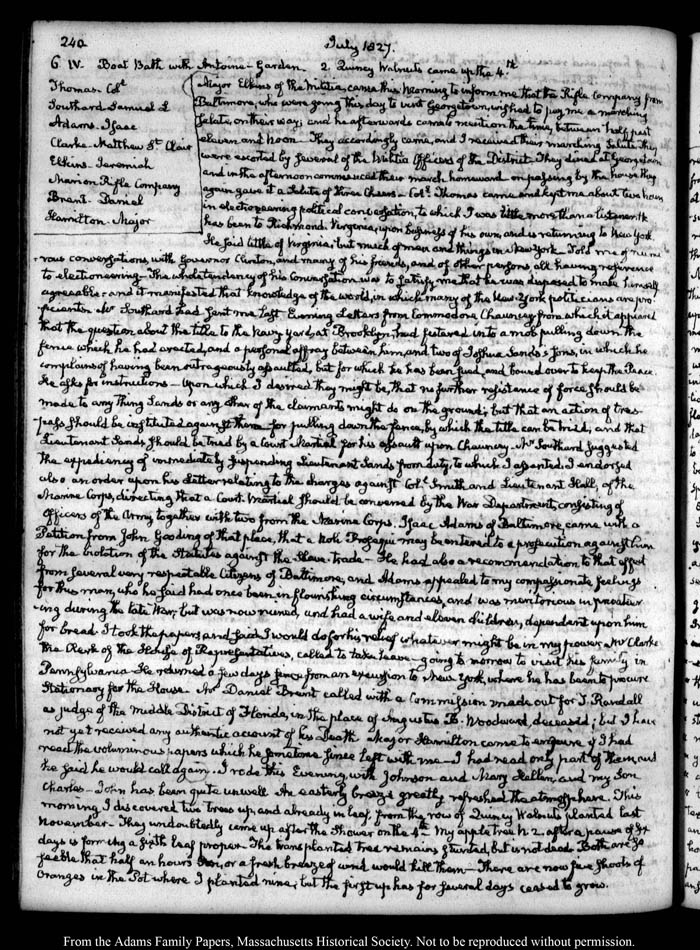 240
July 1827.
6 IV. Boat Bath with Antoine - Garden 2 Quincy Walnuts came up the 4th
Thomas. Colt
Southard Samuel L
Adams Isaac
Clarke. Matthew St Clair
Elkins. Jeremiah
Marion Rifle Company
Brent. Daniel
Hamilton. Major
Major Elkins of the Militia, came this Morning to inform me that the Rifle Company from
Baltimore, who were going this day to visit Georgetown, wished to pay me a marching
Salute, on their way; and he afterwards came to mention the time, between half past
eleven and Noon - They accordingly came, and I received their marching Salute. They
were escorted by several of the Militia Officers of the District. They dined at Georgetown
and in the afternoon commenced their march homeward on passing by the house they
again gave it a Salute of three Cheers - Colt Thomas came and kept me about two hours
in electioneering political conversation, to which I was little more than a listener. He
has been to Richmond, Virginia, upon business of his own, and is returning to New York
He said little of Virginia; but much of men and things in New York. Told me of nume
-rous conversations, with Governor Clinton, and many of his friends, and of other persons, all having reference
to electioneering - The whole tendency of his Conversation was to satisfy me that he was disposed to make himself
agreeable - and it manifested that knowledge of the world, in which many of the New-York politicians are pro-
ficients. Mr Southard had sent me last Evening Letters from Commodore Chauncey, from which it appeared
that the question about the title to the Navy yard, at Brooklyn, had festered into a mob pulling down the
fence which he had erected, and a personal affray between him, and two of Joshua Sands's Sons, in which he
complains of having been outrageously assaulted, but for which he has been sued, and bound over to keep the Peace.
He asks for instructions - upon which I desired they might be, that no further resistance of force should be
made to any thing Sands or any other of the claimants might do on the ground; but that an action of tres-
-pass should be instituted against them for pulling down the fence, by which the title can be tried, and that
Lieutenant Sands should be tried by a Court Martial for his assault upon Chauncey. Mr Southard suggested
the expediency of immediately suspending Lieutenant Sands from duty, to which I assented. I endorsed
also, an order upon his Letter relating to the charges against Colt Smith and Lieutenant Hall, of the
Marine Corps, directing that a Court Martial should be convened by the War Department, consisting of
Officers of the Army together with two from the Marine Corps. Isaac Adams of Baltimore came with a
Petition from John Gooding of that place, that a Noli Prosequi may be entered to a prosecution against him
for the violation of the Statutes against the Slave trade - He had also a recommendation, to that effect
from several very respectable Citizens of Baltimore, and Adams appealed to my compassionate feelings
for this man, who he said had once been in flourishing circumstances, and was meritorious in privateer
-ing during the late War; but was now ruined, and had a wife and eleven children, dependent upon him
for bread. I took the papers, and said I would do for his relief whatever might be in my power. Mr Clarke
the Clerk of the House of Representatives, called to take leave - going to morrow to visit his family in
Pennsylvania. He returned a few days since from an excursion to New York, where he has been to procure
Stationary for the House. Mr Daniel Brent called with a Commission made out for T. Randall
as judge of the Middle District of Florida, in the place of Augustus B. Woodward, deceased; but I have
not yet received any authentic account of his Death. Major Hamilton came to enquire if I had
read the voluminous papers which he sometime since left with me - I had read only part of them, and
he said he would call again. I rode this Evening with Johnson and Mary Hellen, and my Son
Charles - John has been quite unwell. An easterly breeze greatly refreshed the atmosphere. This
morning I discovered two trees up, and already in leaf, from the row of Quincy Walnuts planted last
November. They undoubtedly came up after the Shower on the 4th. My apple tree N. 2. after a pause of six
days is forming a sixth leaf proper. The transplanted tree remains stunted, but is not dead. Both are so
feeble that half an hours Sun, or a fresh breeze of wind would kill them - There are now five shoots of
Oranges in the Pot where I planted nine; but the first up has for several days ceased to grow.
From the Adams Family Papers, Massachusetts Historical Society. Not to be reproduced without permission.